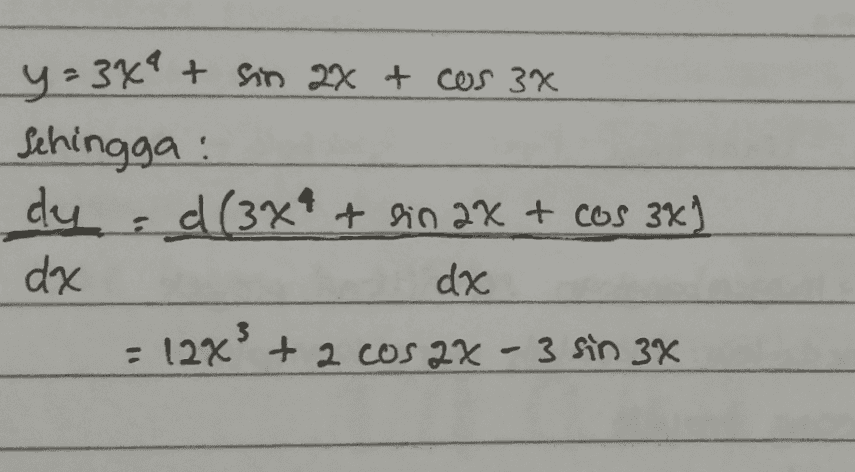 y = 3x⁴ + sin 2x + cos 3x
Sehingga :
dy/dx = d(3x⁴ + sin 2x + cos 3x)/dx
= 12x³ + 2 cos 2x - 3 sin 3x